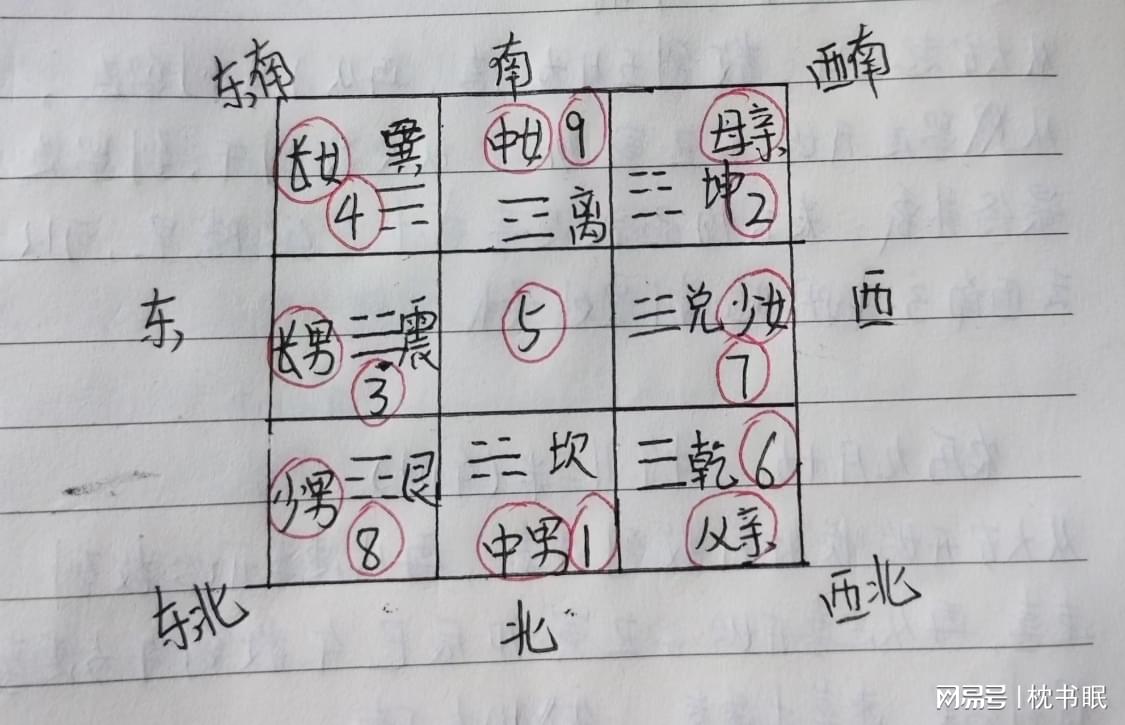 东南 南 西南
长女 巽 4
中女 9
离
母亲
坤 2
东
长男 震
3
5
兑 少女
7
西
少男 艮
8
坎
中男 1
乾 6
父亲
东北 北 西北
网易号 | 枕书眠